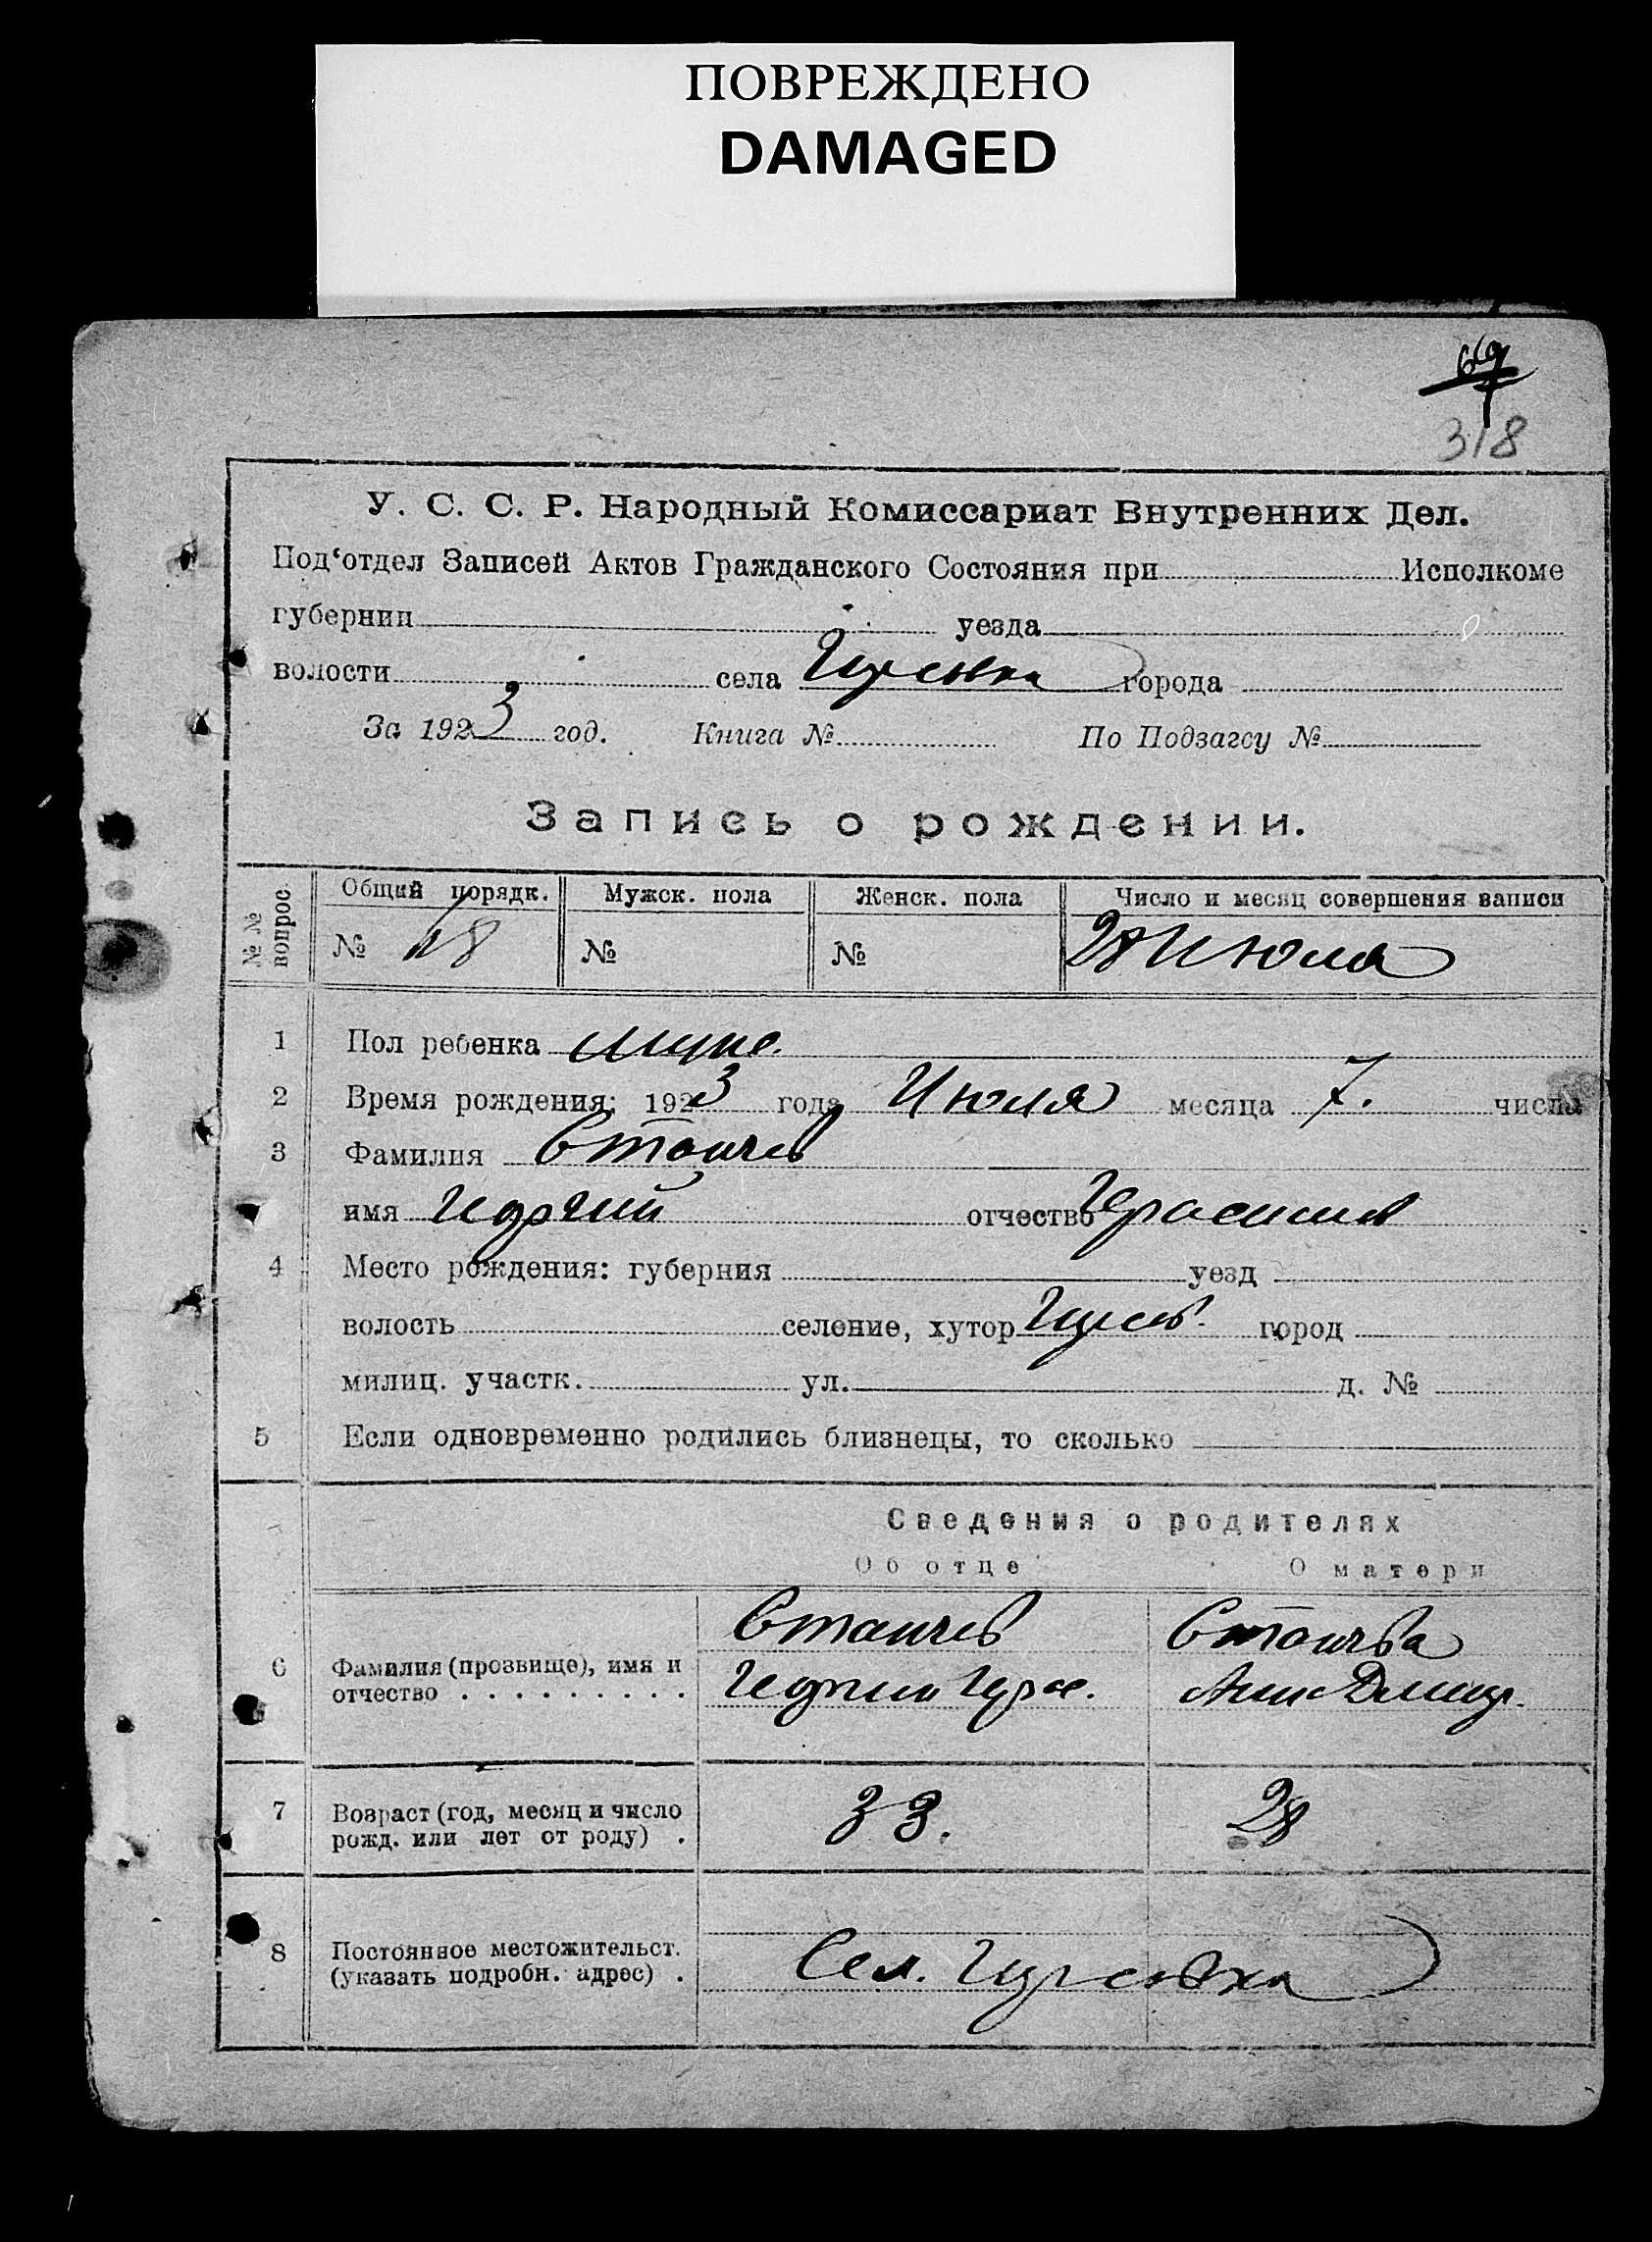 ПОВРЕЖДЕНО
DAMAGED
69
318
У. С. С. Р. Народный Комиссариат Внутренних Дел.
Под‘отдел Записей Актов Гражданского Состояния при Исполкоме
губернии уезда
волости села города
За 1923 год. Книга № По Подзагсу №
Запись о рождении.
№ № вопрос. Общий порядк. Мужск. пола Женск. пола Число и месяц совершения записи
№ № № 28 Июля
1 Пол ребенка мужс.
2 Время рождения: 1923 года Июля месяца 7. числа
3 Фамилия Стоичев
имя отчество Герасимов
4 Место рождения: губерния уезд
волость селение, хутор город
милиц. участк. ул. д. №
5 Если одновременно родились близнецы, то сколько
Сведения о родителях
Об отце О матери
Стоичев Стоичева
6 Фамилия (прозвище), имя и
отчество . . . . . . . . .
7 Возраст (год, месяц и число 33. 28
рожд. или лет от роду) .
8 Постоянное местожительст. Сел.
(указать подробн. адрес) .